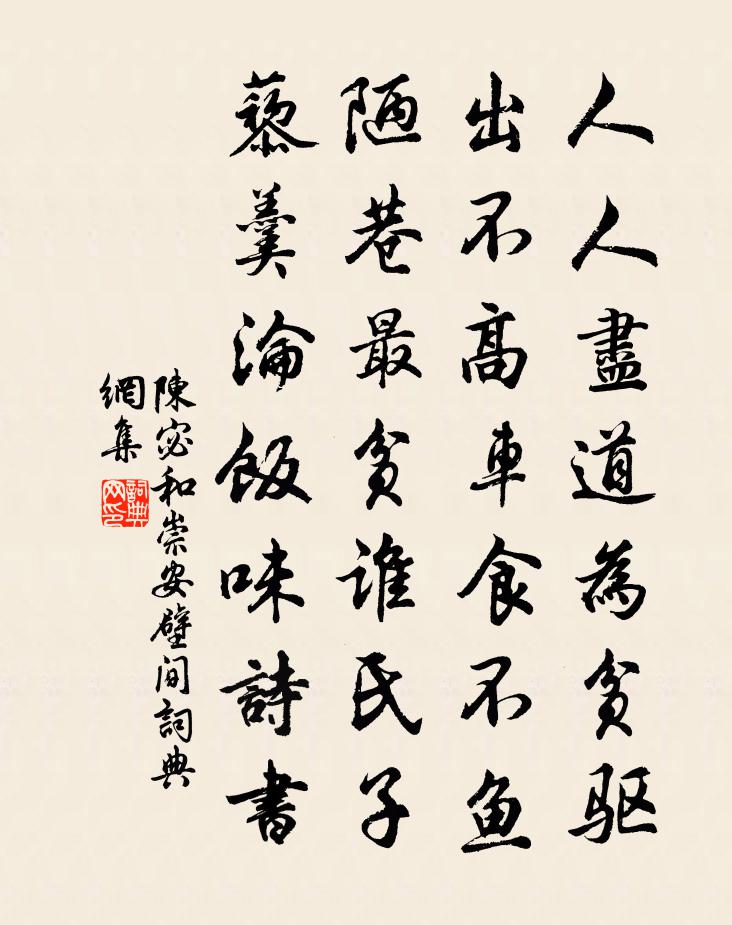 人人盡道為貧驱
出不高車食不鱼
陋巷最貧誰氏子
藜羹淪飯味詩書
陳宓和崇安壁间詞典
網集
詞典网印